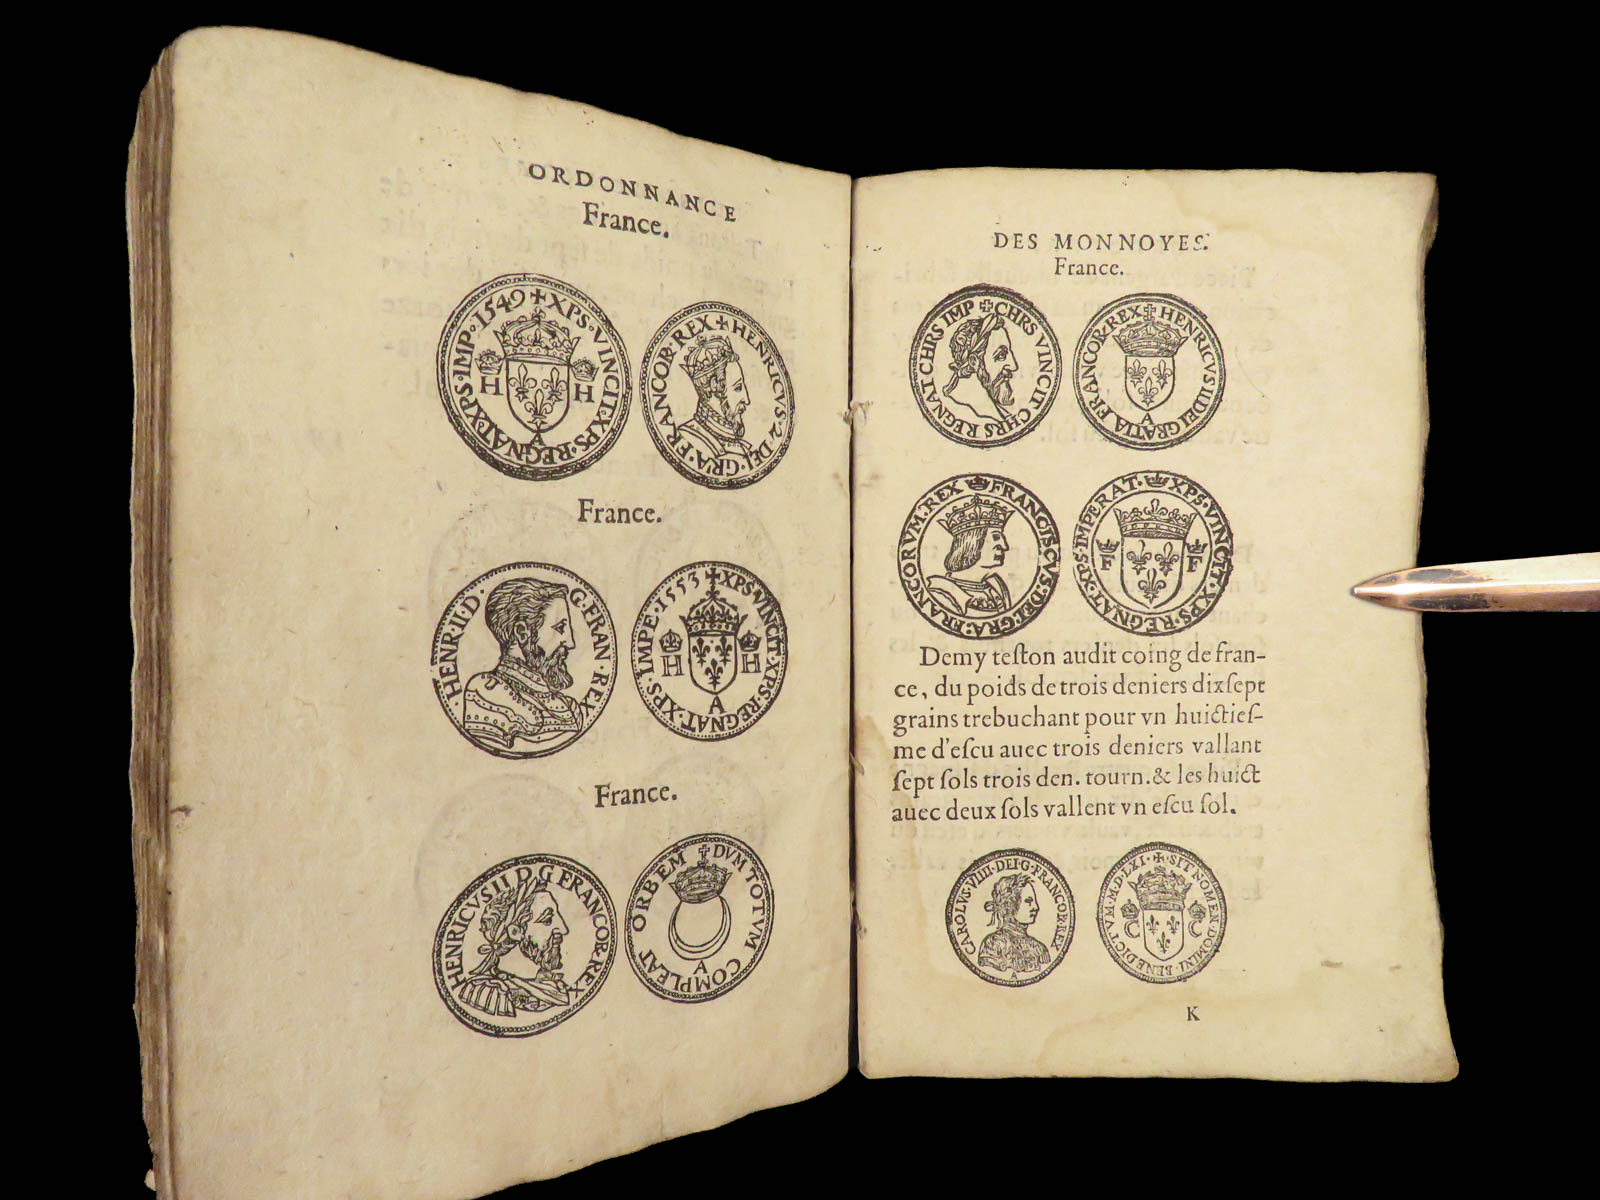 ORDONNANCE
France.
1549 ✠ XPS · VINCIT · XPS · REGNAT · XPS · IMP ·
H H
A
HENRICVS · 2 · DEI · GRA · FRANCOR · REX ✠
France.
· HENR · II · D · G · FRAN · REX ·
✠ XPS · VINCIT · XPS · REGNAT · XPS · IMPE · 1553
H H
A
France.
HENRICVS II D G FRANCOR · REX
DVM TOTVM COMPLEAT ORBEM
A
DES MONNOYES.
France.
✠ CHRS VINCIT CHRS REGNAT CHRS IMP
✠ HENRICVS II DEI GRATIA FRANCOR · REX
A
FRANCISCVS · DEI · GRA · FRANCORVM · REX
XPS · VINCIT · XPS · REGNAT · XPS · IMPERAT ·
F F
Demy teſton audit coing de fran-
ce, du poids de trois deniers dixſept
grains trebuchant pour vn huictieſ-
me d'eſcu auec trois deniers vallant
ſept ſols trois den. tourn. & les huict
auec deux ſols vallent vn eſcu ſol.
CAROLVS · VIIII · DEI · G · FRANCOR · REX
A
✠ · SIT · NOMEN · DOMINI · BENEDICTVM · M · D · LXI ·
C C
K